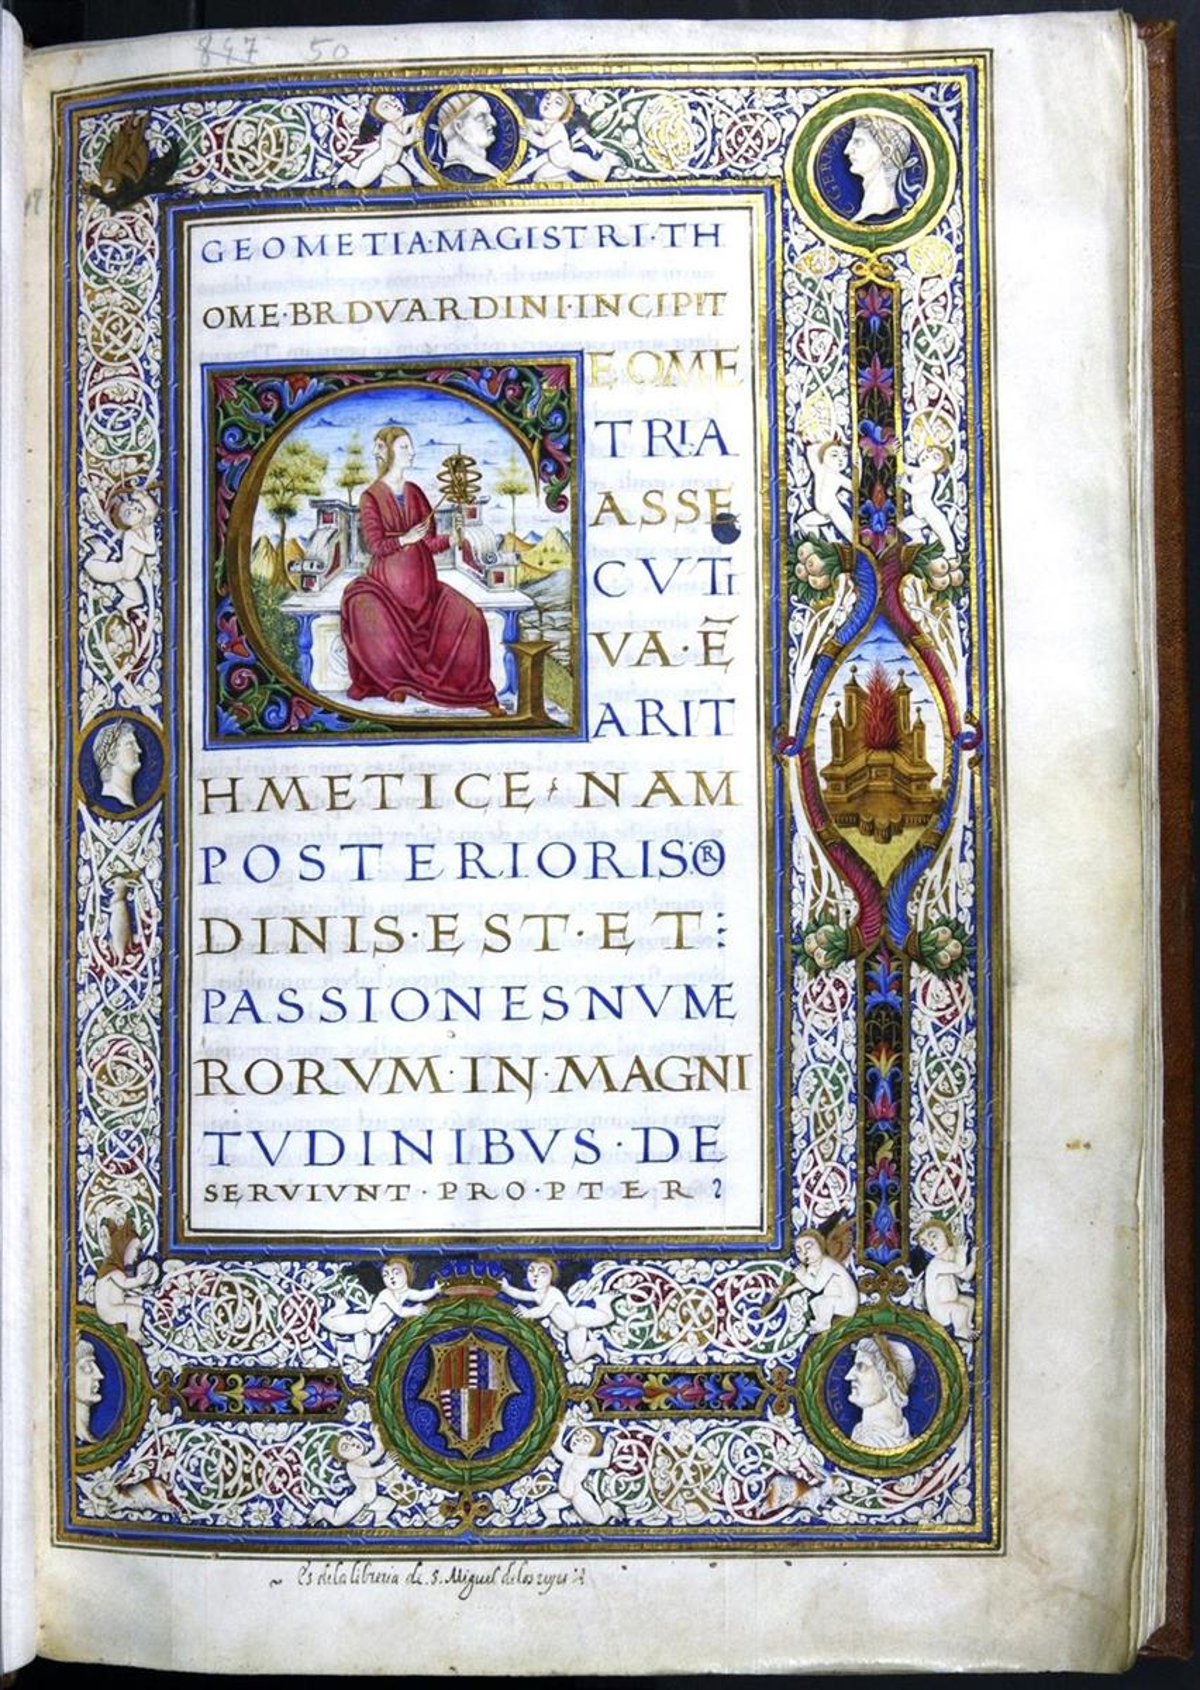 847 50
GEOMETIA·MAGISTRI·TH
OME·BRDVARDINI·INCIPIT
GEOME
TRIA
ASSE
CVTI
VA·Ē
ARIT
HMETICE: NAM
POSTERIORIS OR
DINIS·EST·ET:
PASSIONES NVME
RORVM·IN·MAGNI
TVDINIBVS·DE
SERVIVNT·PROPTER
Es de la libreria de S. Miguel de los reyes